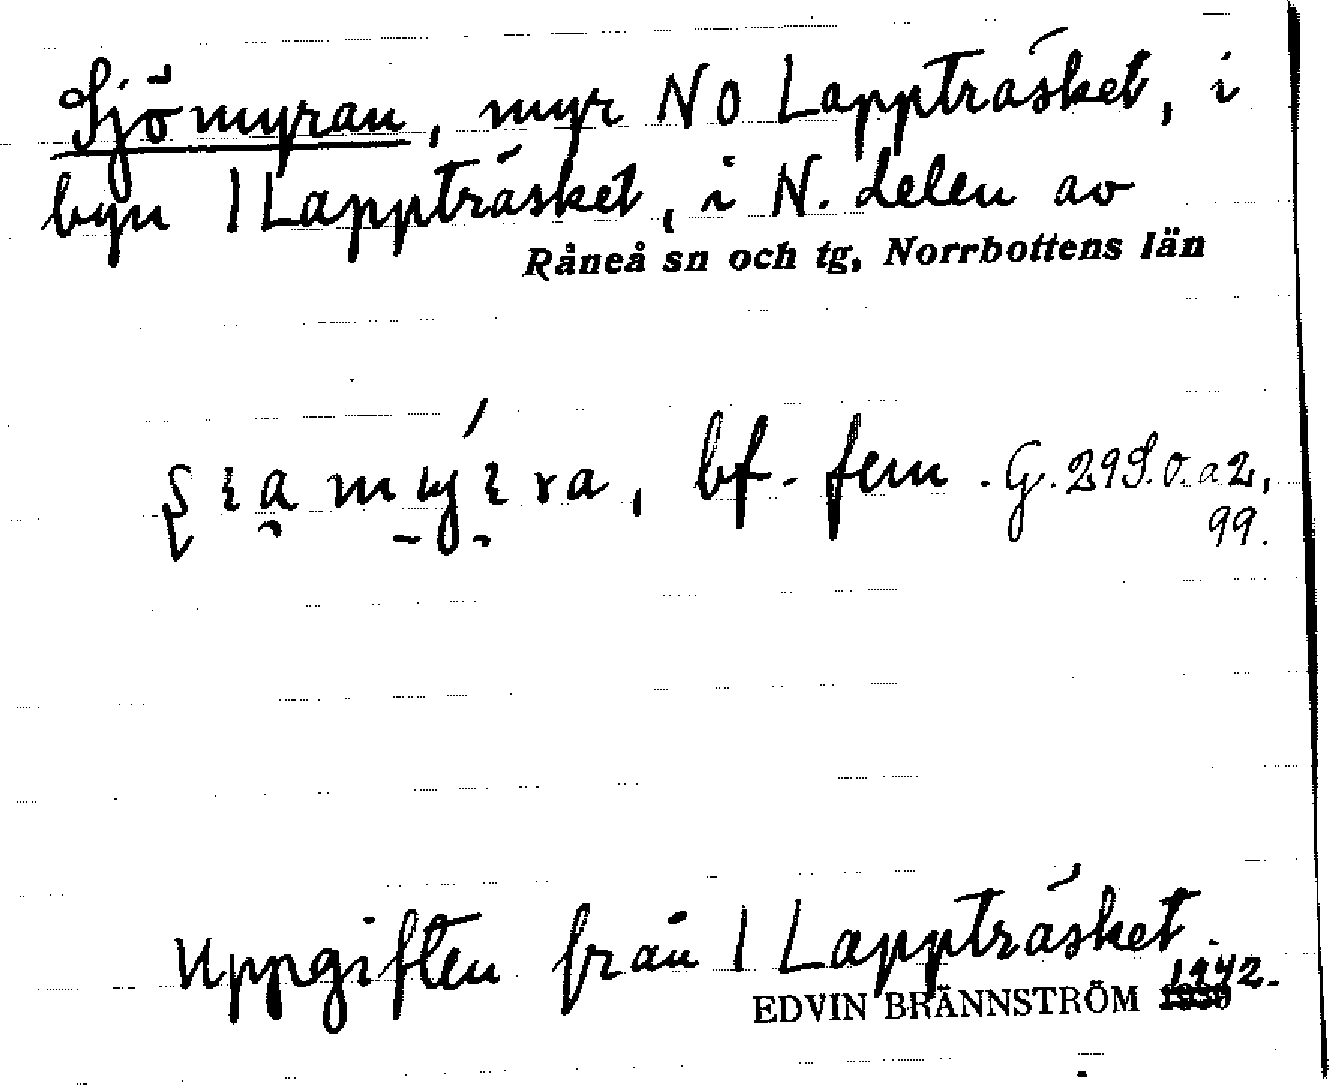 Sjömyran, myr NO Lappträsket, i
byn 1 Lappträsket, i N. delen av
Råneå sn och tg, Norrbottens län
bf. fem. G. 29 S.O. a 2,
99.
Uppgiften från 1 Lappträsket.
EDVIN BRÄNNSTRÖM 1942.